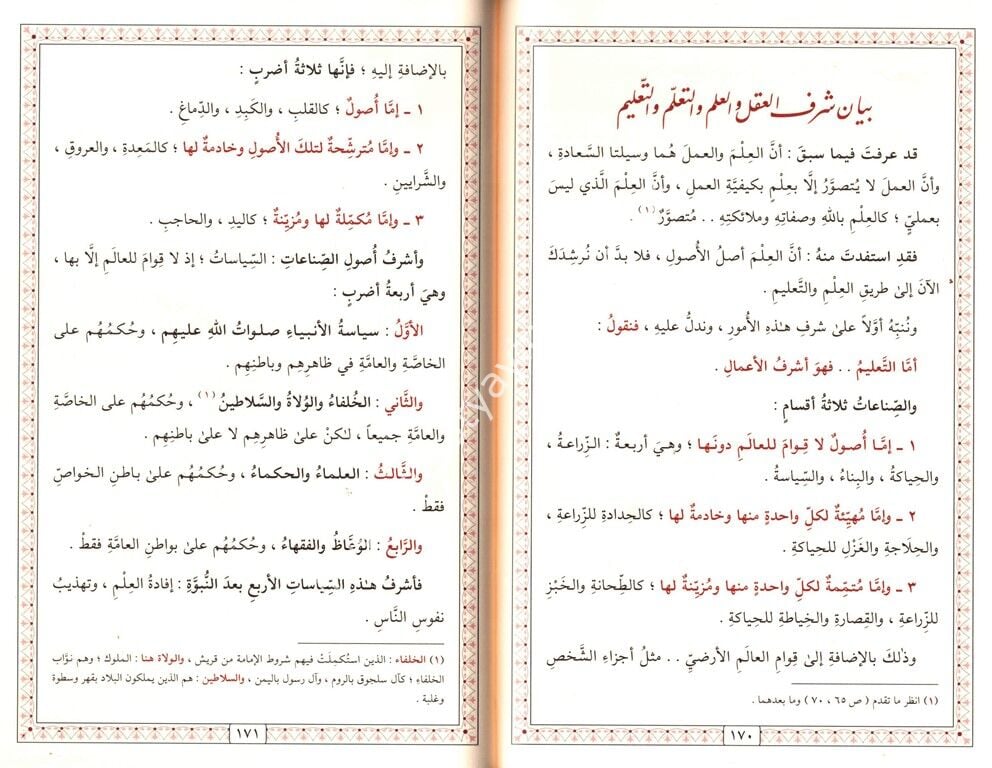 بيان شرف العقل والعلم والتعلّم والتّعليم
قد عرفتَ فيما سبقَ : أنَّ العِلْمَ والعملَ هُما وسيلتا السَّعادةِ ،
وأنَّ العملَ لا يُتصوَّرُ إلَّا بعِلْمٍ بكيفيَّةِ العملِ ، وأنَّ العِلْمَ الَّذي ليسَ
بعمليٍّ ؛ كالعِلْمِ باللهِ وصفاتِهِ وملائكتِهِ . . مُتصوَّرٌ (١) .
فقدِ استفدتَ منهُ : أنَّ العِلْمَ أصلُ الأُصولِ ، فلا بدَّ أن نُرشِدَكَ
الآنَ إلىٰ طريقِ العِلْمِ والتَّعليمِ .
ونُنبِّهُ أوَّلاً علىٰ شرفِ هـٰذهِ الأُمورِ ، وندلُّ عليهِ ، فنقولُ :
أمَّا التَّعليمُ . . فهوَ أشرفُ الأعمالِ .
والصِّناعاتُ ثلاثةُ أقسامٍ :
١ ـ إمَّا أُصولٌ لا قِوامَ للعالَمِ دونَها ؛ وهيَ أربعةٌ : الزِّراعةُ ،
والحِياكةُ ، والبِناءُ ، والسِّياسةُ .
٢ ـ وإمَّا مُهيِّئةٌ لكلِّ واحدةٍ منها وخادمةٌ لها ؛ كالحِدادةِ للزِّراعةِ ،
والحِلاجةِ والغَزْلِ للحِياكةِ .
٣ ـ وإمَّا مُتمِّمةٌ لكلِّ واحدةٍ منها ومُزيِّنةٌ لها ؛ كالطِّحانةِ والخَبْزِ
للزِّراعةِ ، والقِصارةِ والخِياطةِ للحِياكةِ .
وذٰلكَ بالإضافةِ إلىٰ قِوامِ العالَمِ الأرضيِّ . . مثلُ أجزاءِ الشَّخصِ
(١) انظر ما تقدم ( ص ٦٥ ، ٧٠ ) وما بعدهما .
١٧٠
بالإضافةِ إليهِ ؛ فإنَّها ثلاثةُ أضربٍ :
١ ـ إمَّا أُصولٌ ؛ كالقلبِ ، والكَبِدِ ، والدِّماغِ .
٢ ـ وإمَّا مُترشِّحةٌ لتلكَ الأُصولِ وخادمةٌ لها ؛ كالمَعِدةِ ، والعروقِ ،
والشَّرايينِ .
٣ ـ وإمَّا مُكمِّلةٌ لها ومُزيِّنةٌ ؛ كاليدِ ، والحاجبِ .
وأشرفُ أُصولِ الصِّناعاتِ : السِّياساتُ ؛ إذ لا قِوامَ للعالَمِ إلَّا بها ،
وهيَ أربعةُ أضربٍ :
الأوَّلُ : سياسةُ الأنبياءِ صلواتُ اللهِ عليهِم ، وحُكمُهُم على
الخاصَّةِ والعامَّةِ في ظاهرِهِم وباطنِهِم .
والثَّاني : الخُلفاءُ والوُلاةُ والسَّلاطينُ (١) ، وحُكمُهُم على الخاصَّةِ
والعامَّةِ جميعاً ، لـٰكنْ علىٰ ظاهرِهِم لا علىٰ باطنِهِم .
والثَّالثُ : العلماءُ والحكماءُ ، وحُكمُهُم علىٰ باطنِ الخواصِّ
فقطْ .
والرَّابعُ : الوُعَّاظُ والفقهاءُ ، وحُكمُهُم علىٰ بواطنِ العامَّةِ فقطْ .
فأشرفُ هـٰذهِ السِّياساتِ الأربعِ بعدَ النُّبوَّةِ : إفادةُ العِلْمِ ، وتهذيبُ
نفوسِ النَّاسِ .
(١) الخلفاء : الذين استُكمِلَتْ فيهم شروط الإمامة من قريش ، والولاة هنا : الملوك ؛ وهم نوَّاب
الخلفاء ؛ كآل سلجوق بالروم ، وآل رسول باليمن ، والسلاطين : هم الذين يملكون البلاد بقهر وسطوة
وغلبة .
١٧١